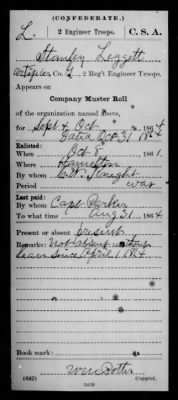 (CONFEDERATE.)
L. 2 Engineer Troops. C. S. A.
Stanley Leggett
Artificer, Co. G, 2 Reg't Engineer Troops.
Appears on
Company Muster Roll
of the organization named above,
for Sept & Oct, 1864
dated Oct 31 1864
Enlisted:
When Oct 8, 1861.
Where Hamilton
By whom
Period war
Last paid:
By whom Capt Parker
To what time Aug 31, 1864
Present or absent present
Remarks: Not absent without
leave since April 1 1864
Book mark:
(642)
Copyist.